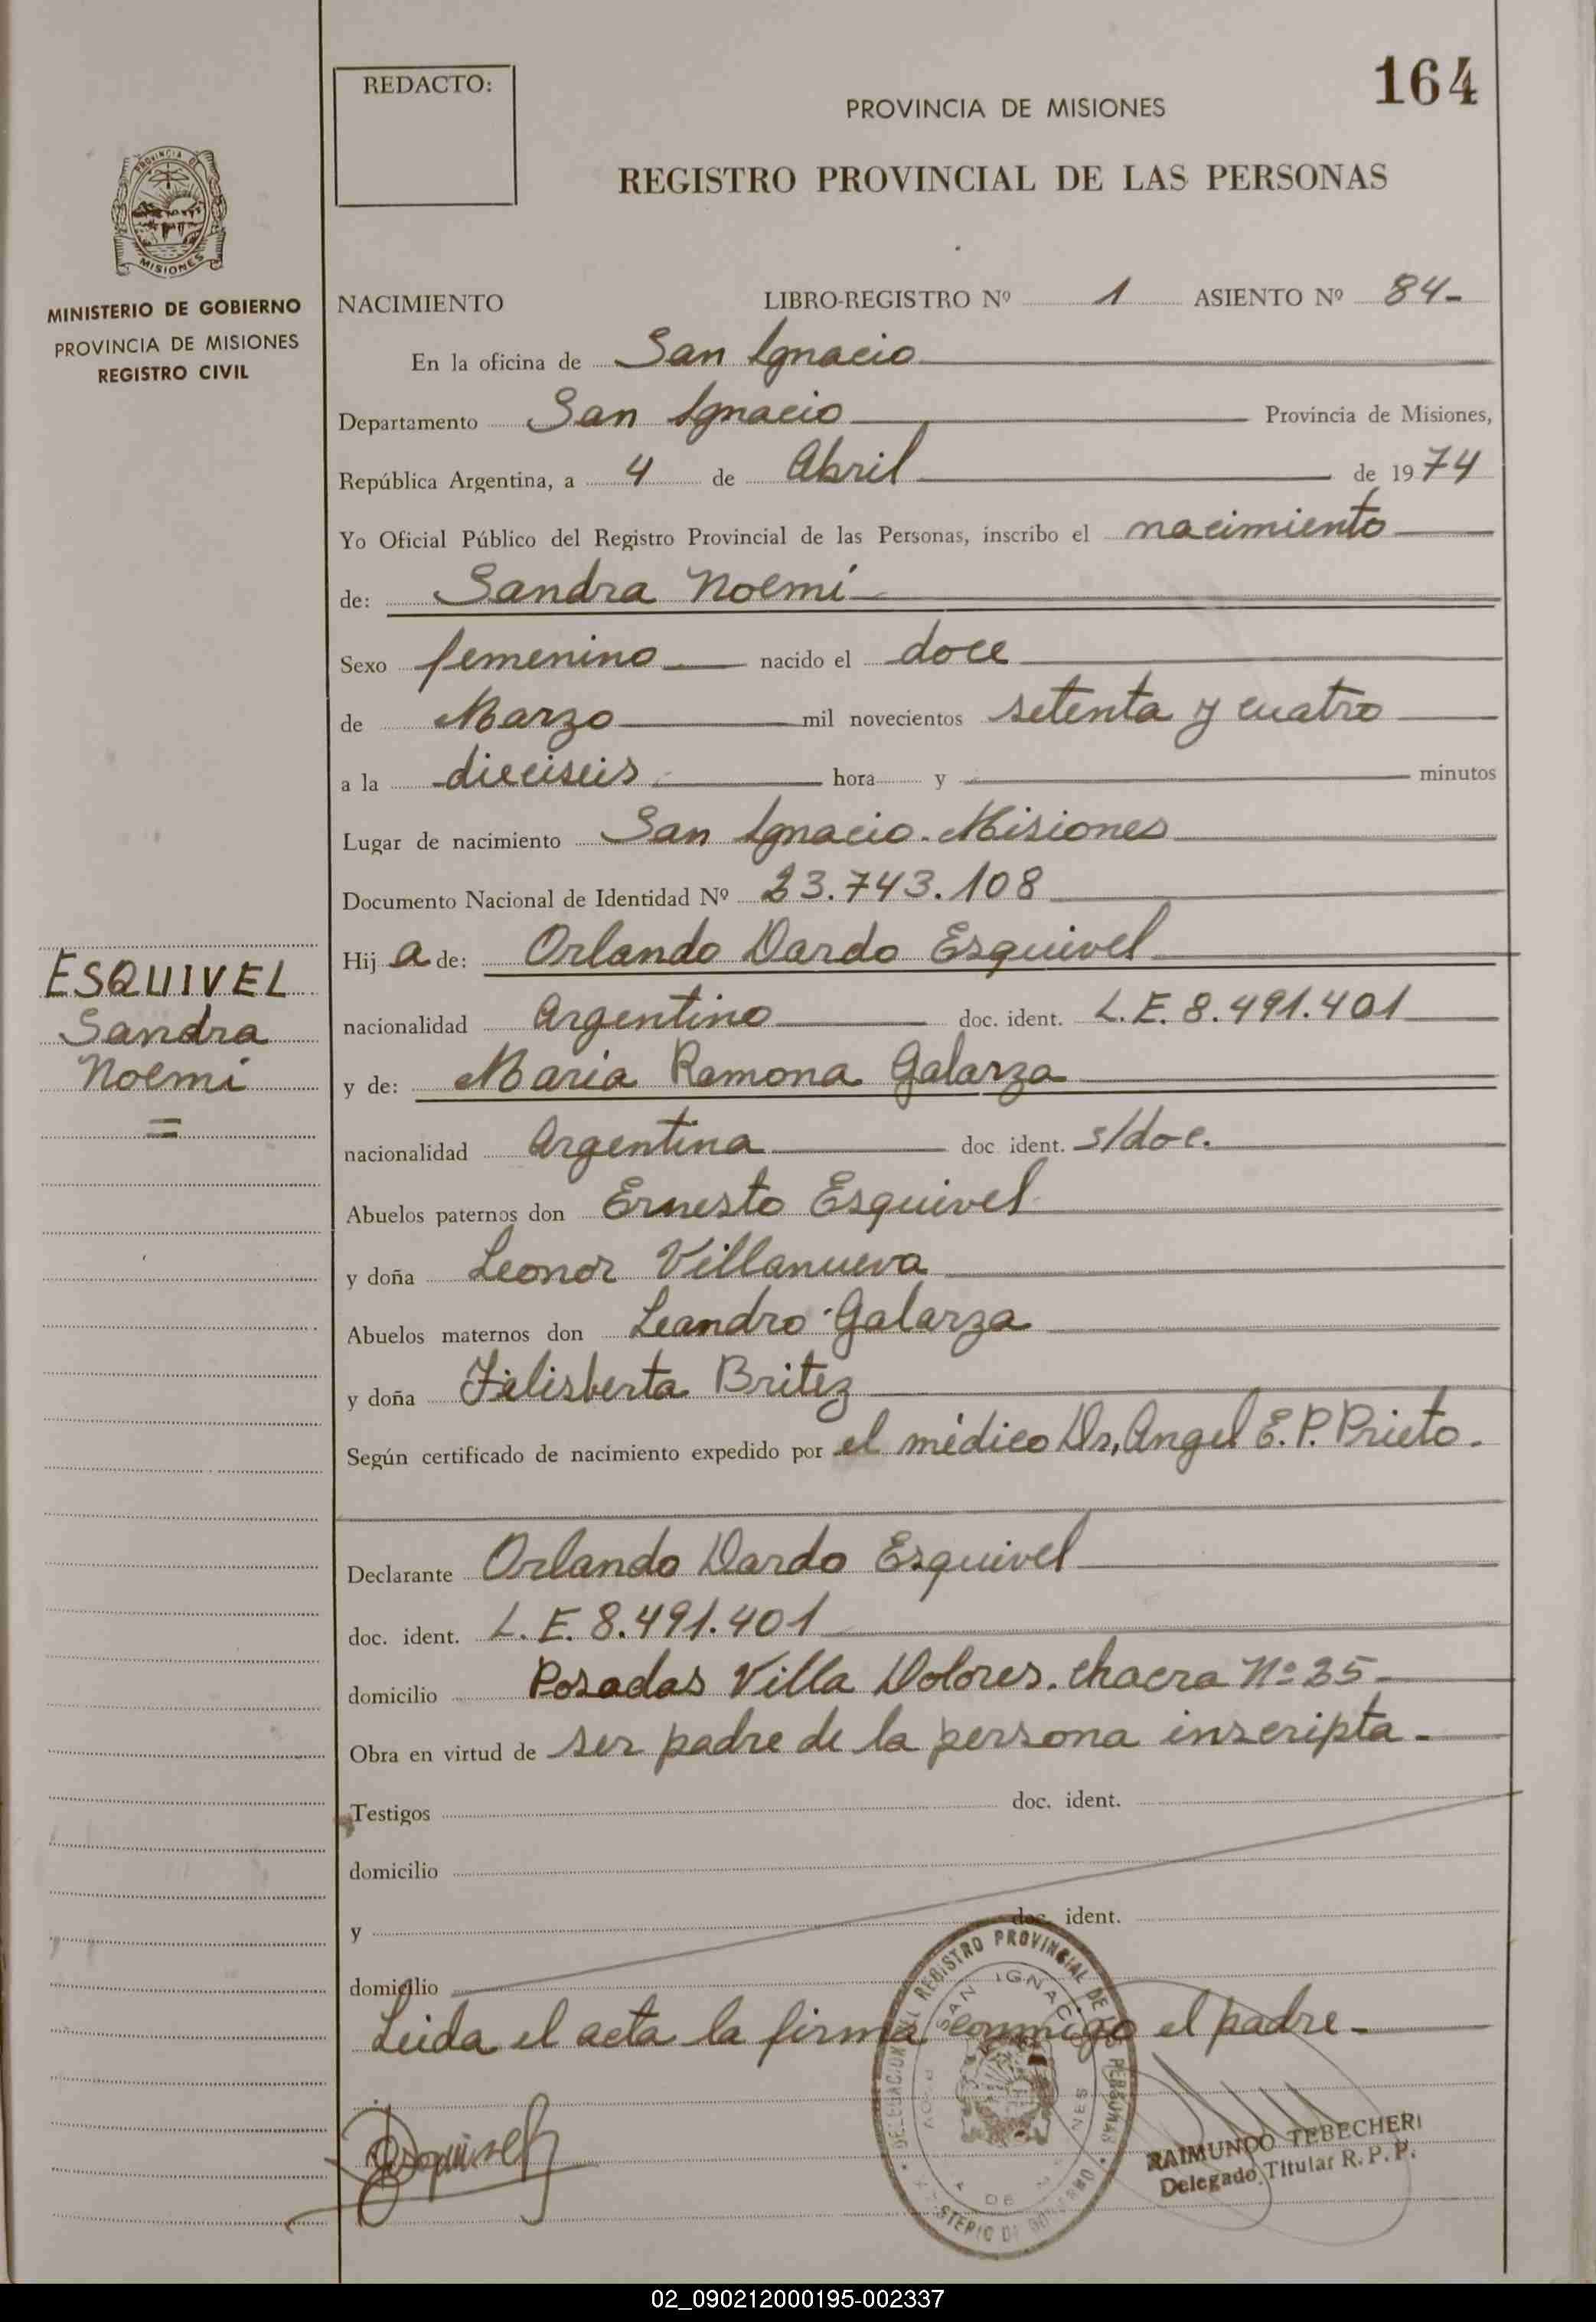 REDACTO:
164
PROVINCIA DE MISIONES
REGISTRO PROVINCIAL DE LAS PERSONAS
PROVINCIA DE
MISIONES
MINISTERIO DE GOBIERNO
PROVINCIA DE MISIONES
REGISTRO CIVIL
NACIMIENTO LIBRO-REGISTRO Nº 1 ASIENTO Nº 84-
En la oficina de San Ignacio
Departamento San Ignacio Provincia de Misiones,
República Argentina, a 4 de Abril de 1974
Yo Oficial Público del Registro Provincial de las Personas, inscribo el nacimiento
de: Sandra Noemí
Sexo femenino nacido el doce
de Marzo mil novecientos setenta y cuatro
a la dieciseis hora y minutos
Lugar de nacimiento San Ignacio. Misiones
Documento Nacional de Identidad Nº 23.743.108
Hij a de: Orlando Dardo Esquivel
nacionalidad Argentino doc. ident. L.E. 8.491.401
y de: Maria Ramona Galarza
nacionalidad Argentina doc ident. s/doc.
Abuelos paternos don Ernesto Esquivel
y doña Leonor Villanueva
Abuelos maternos don Leandro Galarza
y doña Filisberta Britez
Según certificado de nacimiento expedido por el médico Dr, Angel E.P. Prieto.
Declarante Orlando Dardo Esquivel
doc. ident. L.E. 8.491.401
domicilio Posadas Villa Dolores. chacra Nº 35-
Obra en virtud de ser padre de la persona inscripta.
Testigos doc. ident.
domicilio
y doc. ident.
domicilio
Leida el acta la firma conmigo el padre-
ESQUIVEL
Sandra
Noemí
=
DELEGACION DEL REGISTRO PROVINCIAL DE LAS PERSONAS
SAN IGNACIO
Esquivel
RAIMUNDO TEBECHERI
Delegado Titular R.P.P.
02_090212000195-002337